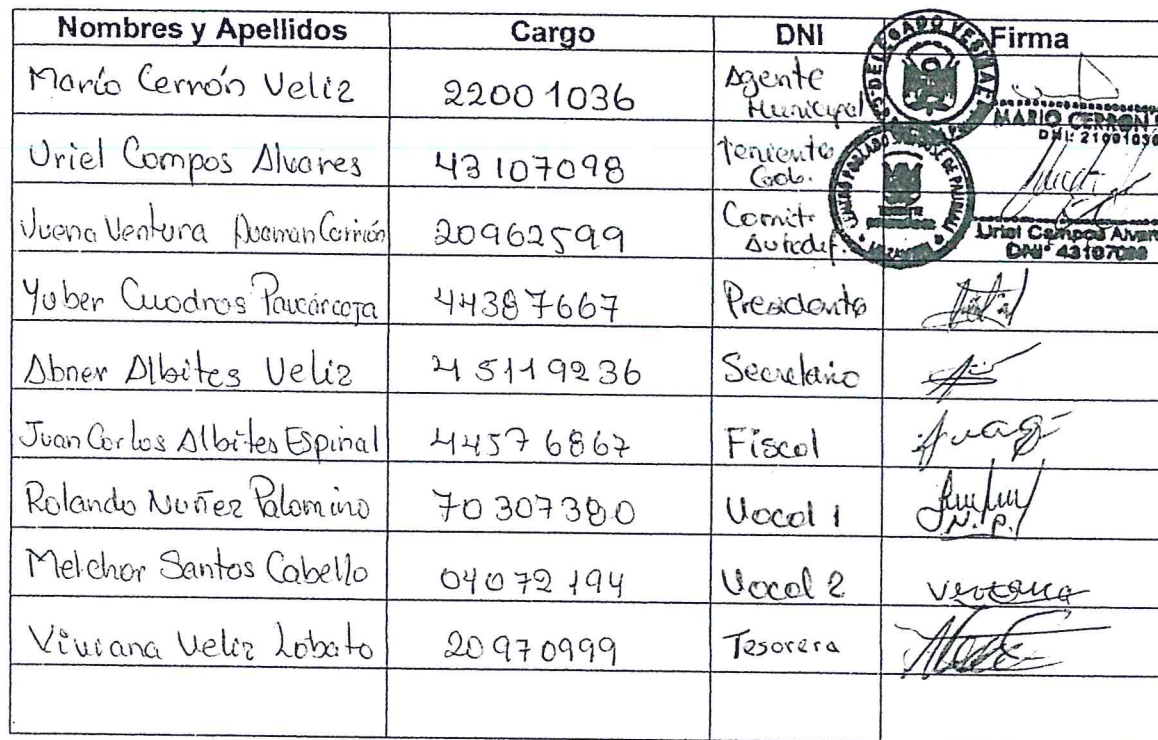 Nombres y Apellidos Cargo DNI Firma
Mario Cerrón Veliz 22001036 Agente Municipal
MARIO CERRON
DNI: 21001036
Uriel Campos Alvares 43107098 Teniente Gob.
Uriel Campos Alvar
DNI° 43107098
Ventura 20962599 Comite Autodef.
Yuber Cuadros Paucarcaja 44387667 Presidente
Abner Albites Veliz 45119236 Secretario
Juan Carlos Albites Espinal 44576867 Fiscal
Rolando Nuñez Palomino 70307380 Vocal 1
N. P.
Melchor Santos Cabello 04072194 Vocal 2
Viviana Veliz Lobato 20970999 Tesorera